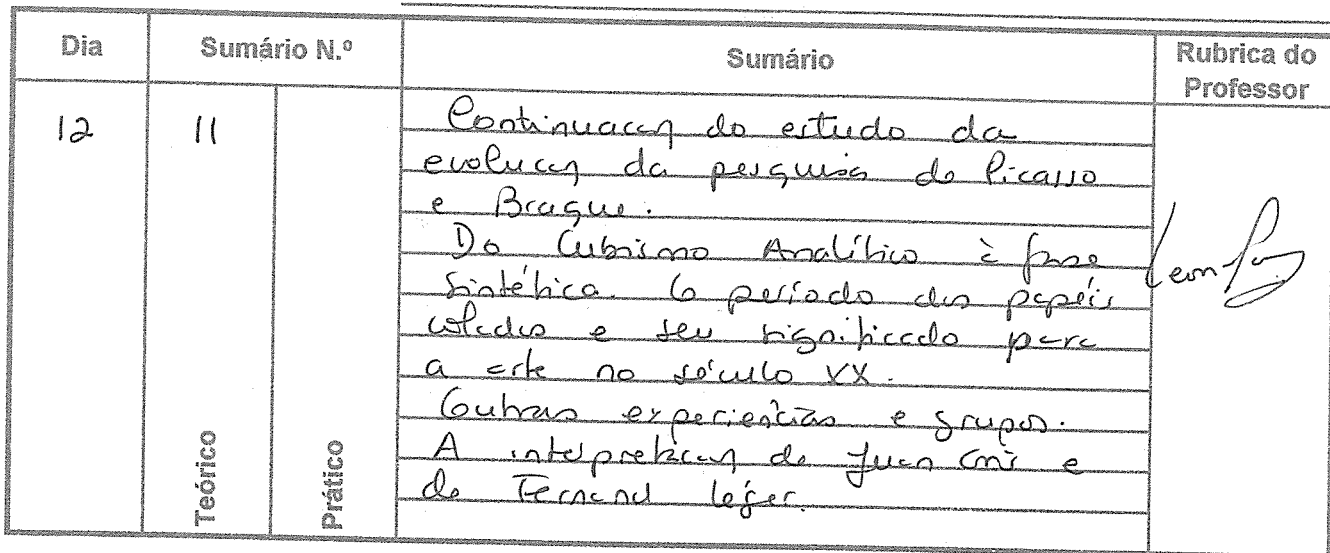 Dia Sumário N.º Sumário Rubrica do Professor
12 11
Continuação do estudo da
evolução da pesquisa de Picasso
e Braque.
Do Cubismo Analítico à fase
Sintética. O período dos papéis
colados e seu significado para
a arte no século XX.
Outras experiências e grupos.
A interpretação de Juan Gris e
de Fernand Léger.
Teórico
Prático